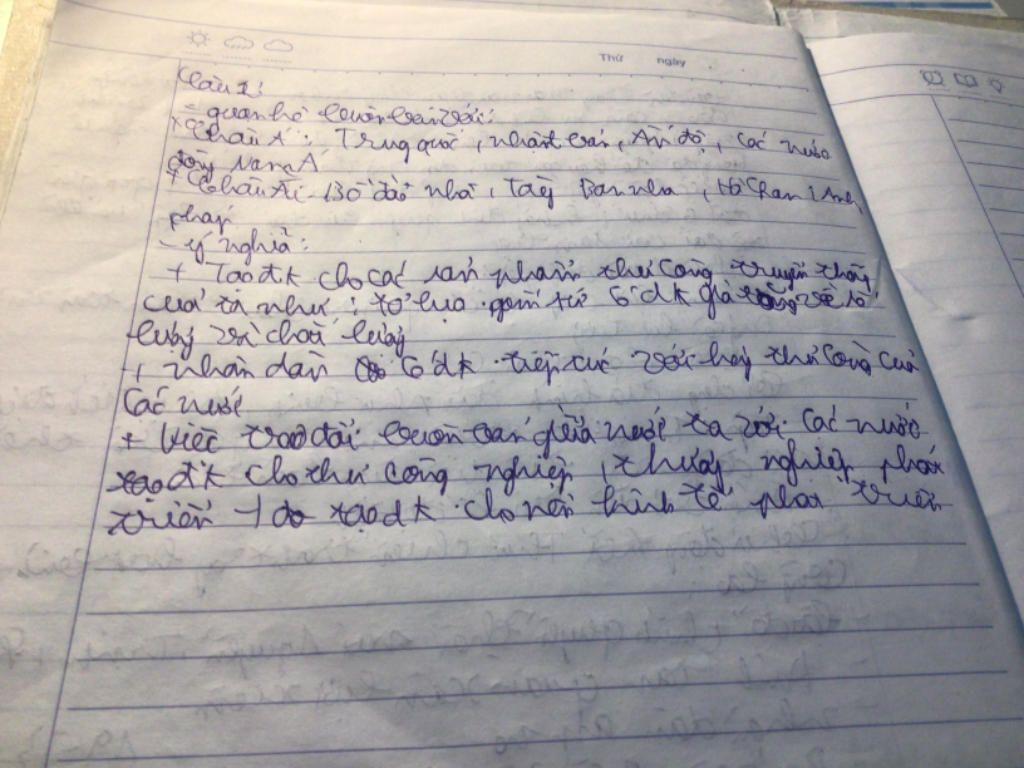 Thứ ngày
Câu 1:
- quan hệ buôn bán với:
+ Châu Á: Trung quốc, nhật bản, Ấn độ, các nước
đông Nam Á
+ Châu Âu - Bồ đào nha, Tây Ban nha, Hà Lan, Anh,
pháp
- ý nghĩa:
+ Tạo đk cho các sản phẩm thủ công truyền thống
của ta như: tơ lụa, gốm sứ có đk gia tăng về số
lượng và chất lượng
+ nhân dân có đk tiếp xúc với hàng thủ công của
các nước
+ Việc trao đổi buôn bán giữa nước ta với các nước
tạo đk cho thủ công nghiệp, thương nghiệp phát
triển tạo đk cho nền kinh tế phát triển